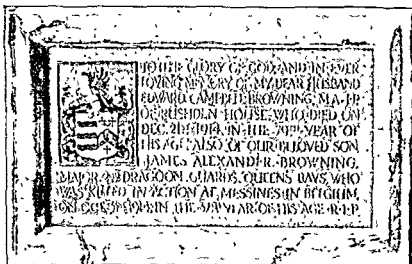 TO THE GLORY OF GOD AND IN EVER
LOVING MEMORY OF MY DEAR HUSBAND
EDWARD CAMPBELL BROWNING, M.A. J.P.
OF RUSHDEN HOUSE, WHO DIED ON
DEC. 1914, IN THE YEAR OF
HIS AGE. ALSO OF OUR BELOVED SON
JAMES ALEXANDER BROWNING,
MAJOR, DRAGOON GUARDS, QUEENS BAYS, WHO
WAS KILLED IN ACTION AT MESSINES IN BELGIUM,
IN THE YEAR OF HIS AGE R·I·P